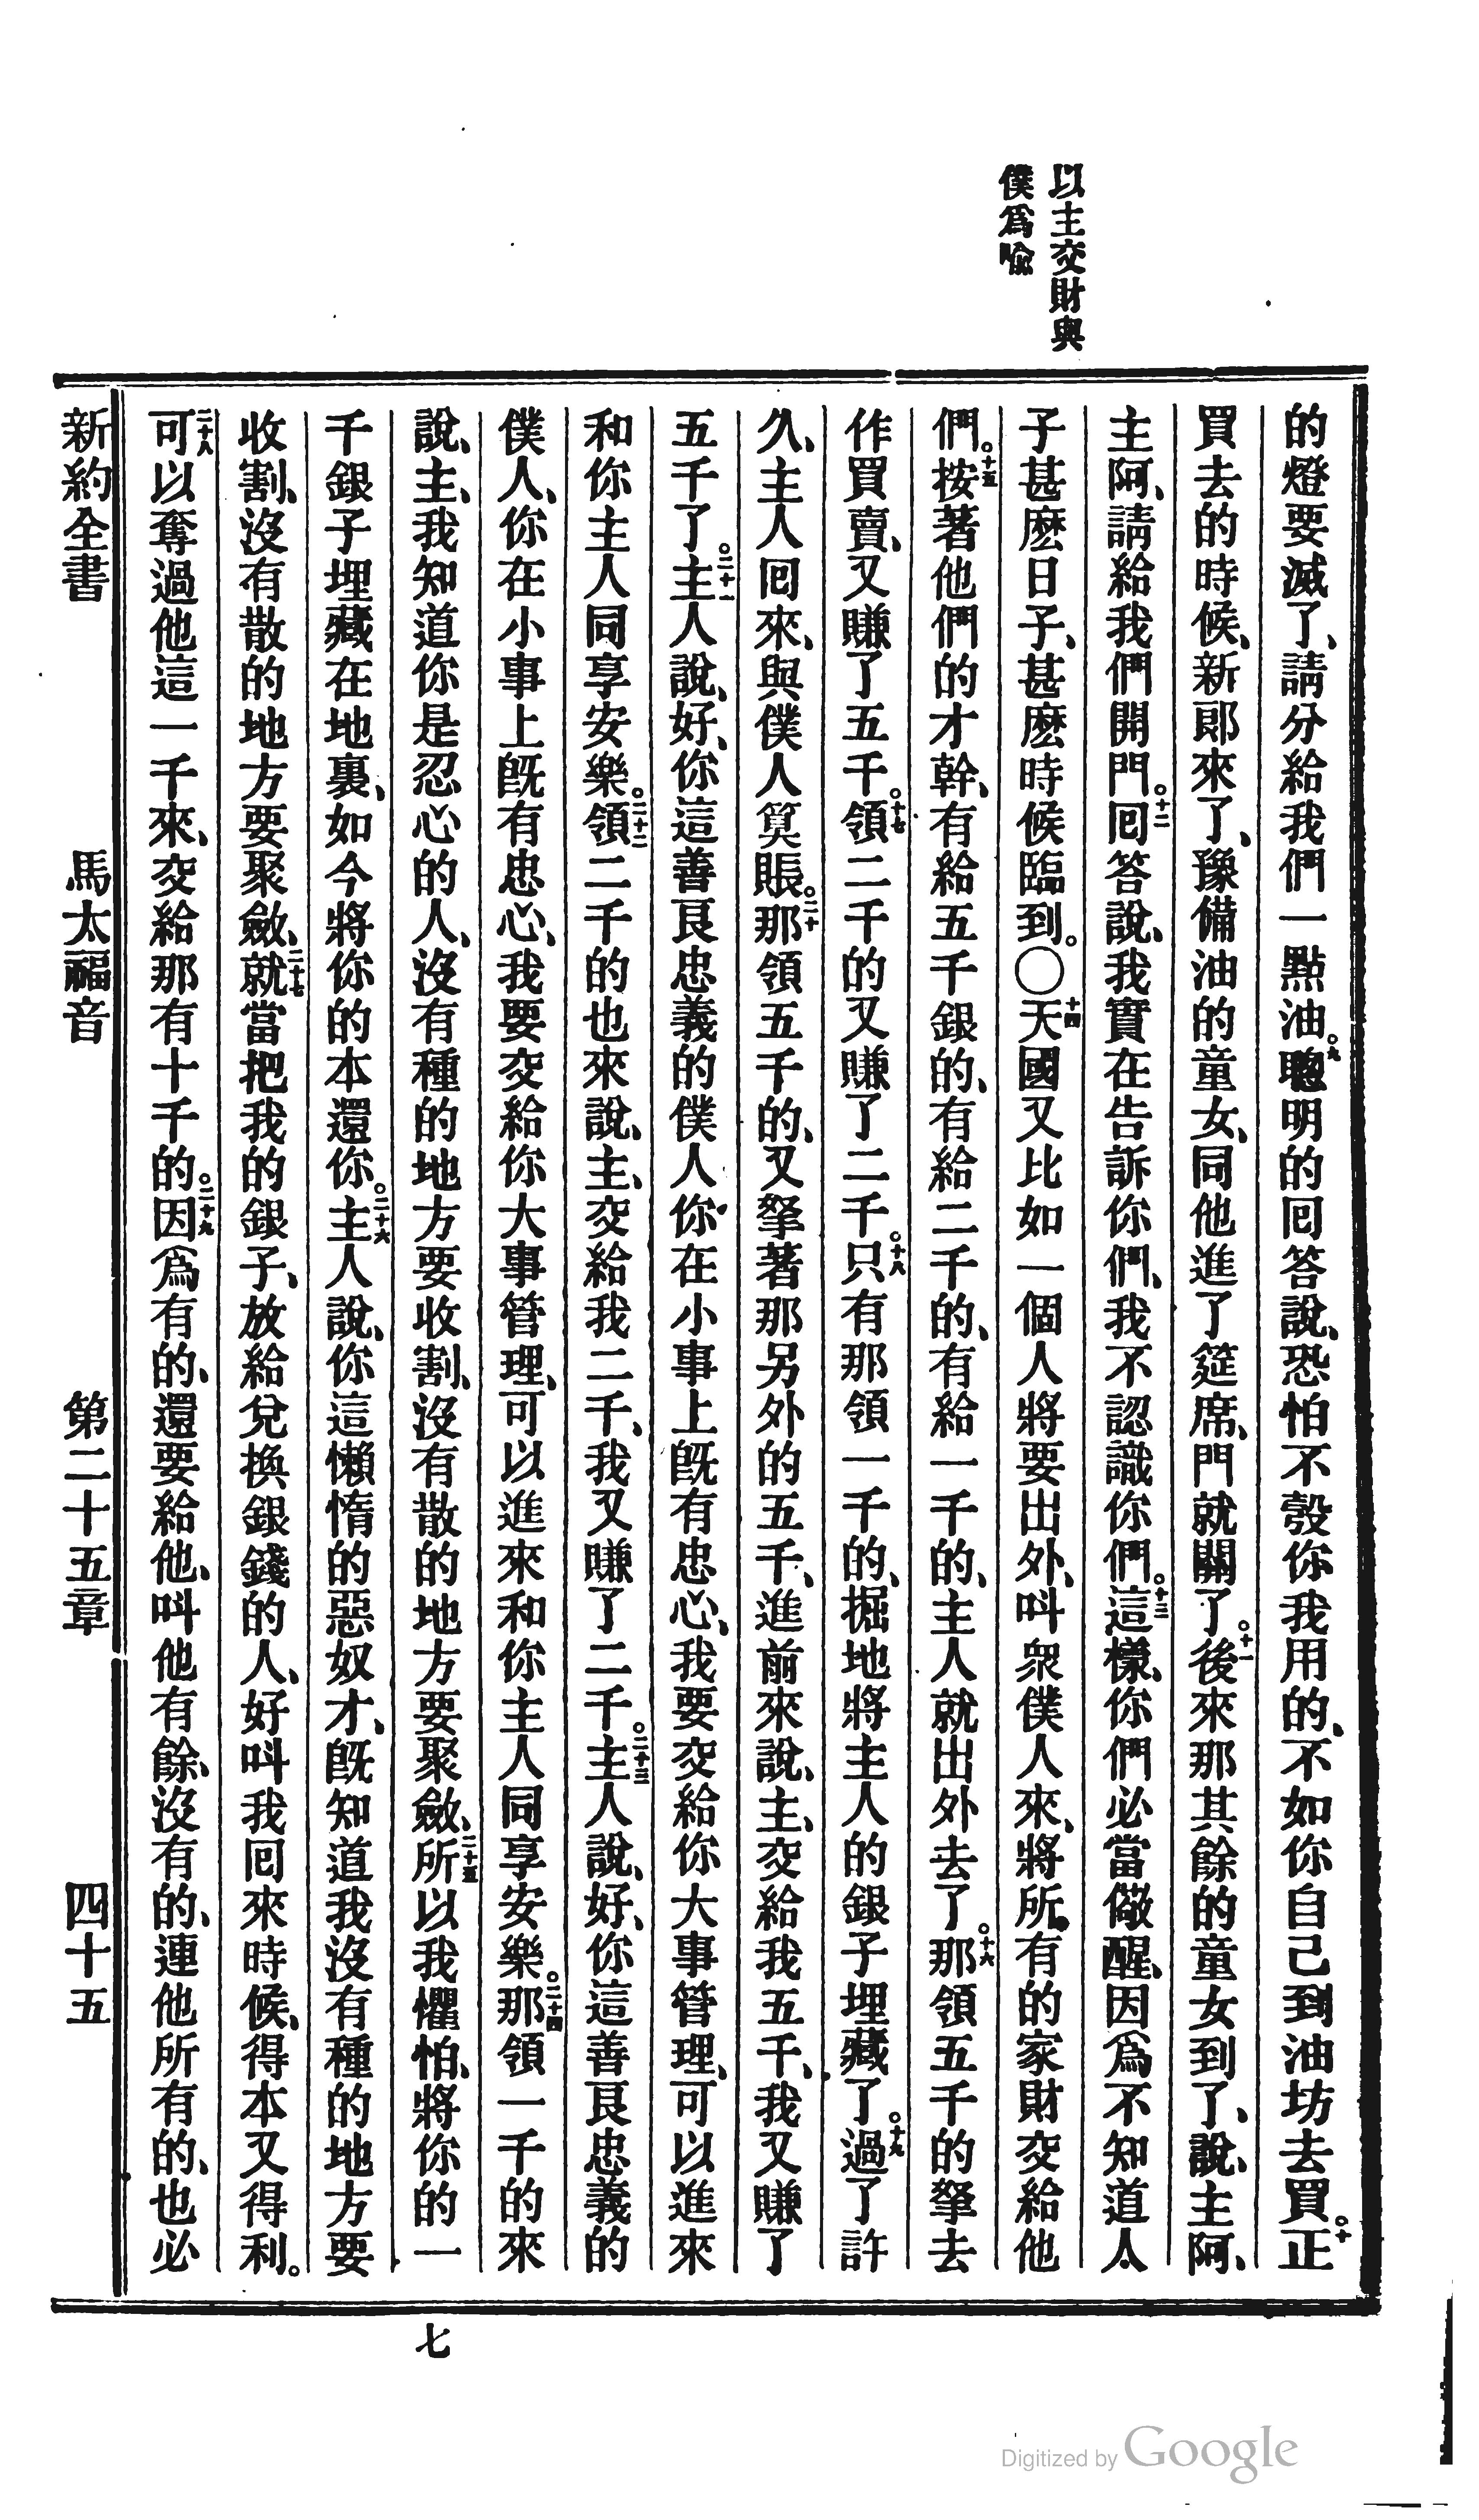 以主交財與
僕爲喻
的燈要滅了、請分給我們一點油。九聰明的囘答說、恐怕不彀你我用的、不如你自己到油坊去買。十正
買去的時候、新郎來了、豫備油的童女、同他進了筵席、門就關了。十一後來那其餘的童女到了、說、主阿、
主阿、請給我們開門。十二囘答說、我實在告訴你們、我不認識你們。十三這樣、你們必當儆醒、因爲不知道人
子甚麽日子、甚麽時候臨到。〇十四天國又比如一個人將要出外、呌衆僕人來、將所有的家財交給他
們。十五按著他們的才幹、有給五千銀的、有給二千的、有給一千的、主人就出外去了。十六那領五千的拏去
作買賣、又賺了五千。十七領二千的又賺了二千。十八只有那領一千的、掘地將主人的銀子埋藏了。十九過了許
久、主人囘來、與僕人筭賬。二十那領五千的、又拏著那另外的五千、進前來說、主、交給我五千、我又賺了
五千了。二十一主人說、好、你這善良忠義的僕人你在小事上旣有忠心、我要交給你大事管理、可以進來
和你主人同享安樂。二十二領二千的也來說、主、交給我二千、我又賺了二千。二十三主人說、好、你這善良忠義的
僕人、你在小事上旣有忠心、我要交給你大事管理、可以進來和你主人同享安樂。二十四那領一千的來
說、主、我知道你是忍心的人、沒有種的地方要收割、沒有散的地方要聚斂、二十五所以我懼怕、將你的一
千銀子埋藏在地裏、如今將你的本還你。二十六主人說、你這懶惰的惡奴才、旣知道我沒有種的地方要
收割、沒有散的地方要聚斂、二十七就當把我的銀子、放給兌換銀錢的人、好呌我囘來時候、得本又得利。
二十八可以奪過他這一千來、交給那有十千的。二十九因爲有的、還要給他、呌他有餘、沒有的、連他所有的、也必
新約全書　馬太福音　第二十五章　四十五
七
Digitized by Google